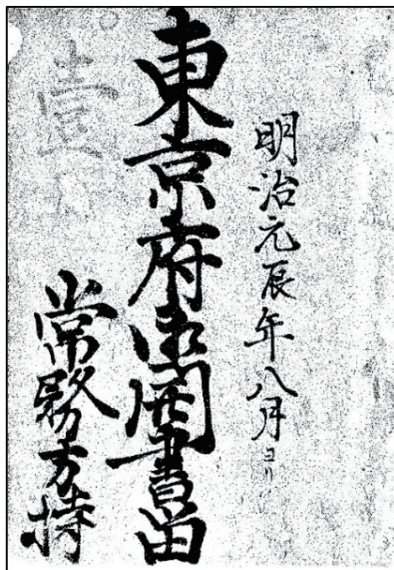 明治元辰年八月ヨリ
東京府御開書留
常務方持
壹